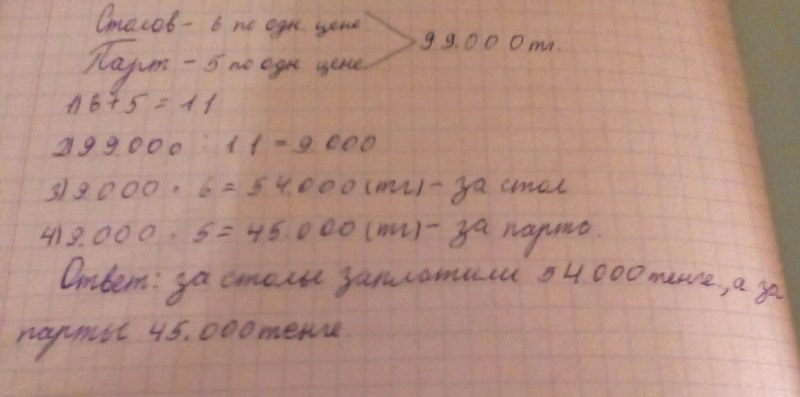 Столов - 6 по одн. цене
99.000 тг.
Парт - 5 по одн цене
1) 6 + 5 = 11
2) 99.000 : 11 = 9.000
3) 9.000 · 6 = 54.000 (тг) - за стол
4) 9.000 · 5 = 45.000 (тг) - за парто.
Ответ: за столы заплотили 54.000 тенге, а за
парты 45.000 тенге.